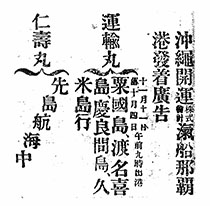 沖繩開運株式會社滊船那覇
港發着廣告
運輸丸
十一月十一日
第十月四日午前九時出港
粟國島、渡名喜
島、慶良間島、久
米島行
仁壽丸
先島航海中